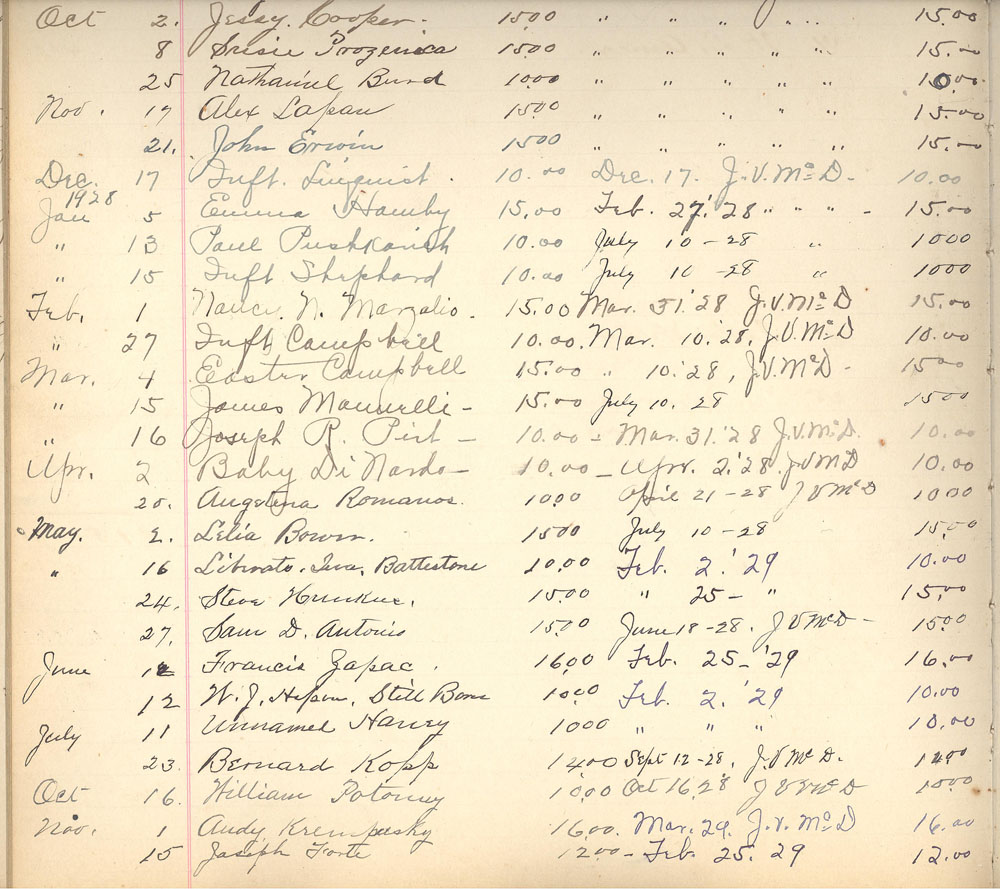 Oct 2. Jessy Cooper. 1500 " " " " " 15.00
8 Susie Prozenica 1500 " " " " " 15.00
25 Nathaniel Burd 1000 " " " " " 10.00
Nov. 17 Alex Lapan 1500 " " " " " 15.00
21. John Erwin 1500 " " " " " 15.00
Dec. 17 Inft. Linquist. 10.00 Dec. 17. J.V.McD. 10.00
1928
Jan 5 Emma Hamby 15.00 Feb. 27.'28 " " " - 15.00
" 13 Paul Pushkarich 10.00 July 10-28 " 1000
" 15 Inft Shephard 10.00 July 10-28 " 1000
Feb. 1 N. Marzalio. 15.00 Mar. 31.'28 J.V.McD 15.00
" 27 Inft Campbell 10.00. Mar. 10.'28, J.V.McD 10.00
Mar. 4 Easter Campbell 15.00 " 10.'28, J.V.McD- 1500
" 15 James - 15.00 July 10. 28 1500
" 16 Joseph R. - 10.00 - Mar. 31.'28 J.V.McD. 10.00
Apr. 2 Baby Di Nardo- 10.00 - Apr. 2.'28. J.V.McD 10.00
20. Augstena Romanos. 1000 April 21-28 J V McD 1000
May. 2. Lelia Bowm. 1500 July 10-28 15.00
" 16 Liberato. Battestone 10.00 Feb. 2.'29 10.00
24. Steve 1500 " 25- " 15.00
27. Sam D. Antonio 1500 June 18-28. J V McD- 1500
June 12 Francis Zapac. 1600 Feb. 25-'29 16.00
12 W. J. Still Born 1000 Feb. 2.'29 10.00
July 11 Unnamed Harvey 1000 " " " 10.00
23. Bernard Kopp 1400 Sept 12-28, J.V McD. 1400
Oct 16. William Potomy 1000 Oct 16.28 J V McD 1000
Nov. 1 Andy Krempasky 16.00. Mar. 29. J.V. McD 16.00
15 Joseph Forte 1200- Feb. 25. 29 12.00